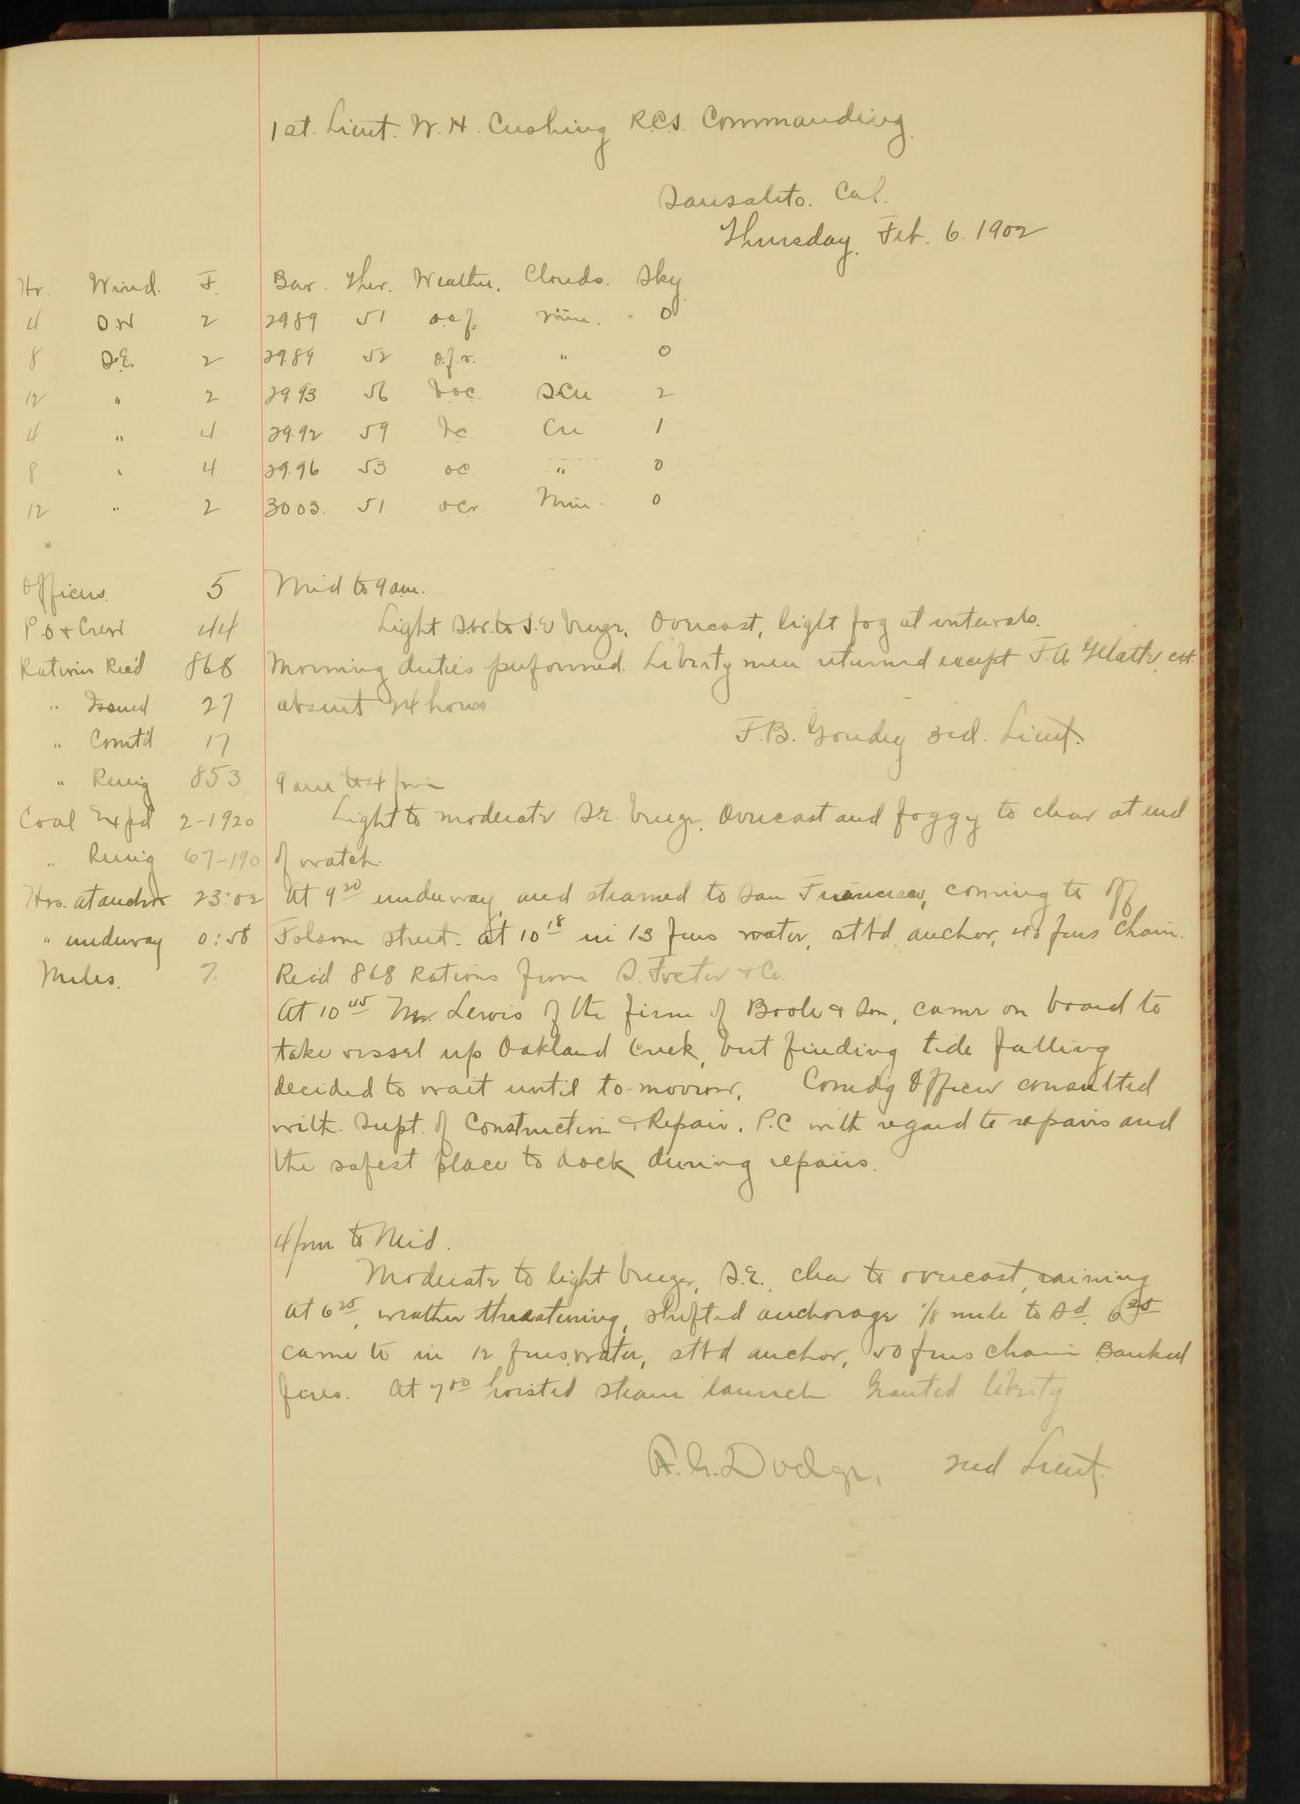 1st. Lieut. W. H. Cushing R.C.S. Commanding.
Sausalito. Cal.
Thursday. Feb. 6. 1902
Hr. Wind. F. Bar. Ther. Weather. Clouds. Sky
4 SW 2 2989 51 o.c.f. Nim. 0
8 S.E. 2 2989 52 o.f.r. " 0
12 " 2 2993 56 b.o.c. SCu 2
4 " 4 29.92 59 bc Cu 1
8 " 4 29.96 53 oc " 0
12 " 2 3003. 51 ocr. Nim. 0
Officers. 5 Mid to 9 am.
P.O & Crew 44 Light SW. to S.E breeze. Overcast, light fog at intervals.
Rations Rec'd 868 Morning duties performed. Liberty men returned except F.A.
" Issued 27 absent 24 hours.
" Comt'd 17 F.B. Goudey 3rd. Lieut.
" Remg 853 9 am to 4 pm
Coal Expd 2-1920 Light to moderate S.E. breeze. Overcast and foggy to clear at end
" Remg 67-190 of watch.
Hrs. at anchor 23:02 At 9 20 underway, and steamed to San Francisco, coming to off
" underway 0:58 Folsom street. at 10 18 in 13 fms water, stbd anchor, 45 fms chain.
Miles. 7. Rec'd 868 Rations from S. Foster & Co.
At 10 45 Mr. Lewis of the firm of Boole & Son, came on board to
take vessel up Oakland Creek, but finding tide falling
decided to wait until to-morrow. Comdg Officer consulted
with Supt. of Construction & Repair. P.C with regard to repairs and
the safest place to dock during repairs.
4 pm to Mid.
Moderate to light breeze, S.E., clear to overcast, raining
At 6 25, weather threatening, shifted anchorage 1/8 mile to Sd. 6 35
came to in 12 fms water, stbd anchor, 50 fms chain Banked
fires. At 7 00 hoisted steam launch. Granted liberty
F.G. Dodge, 2nd Lieut.